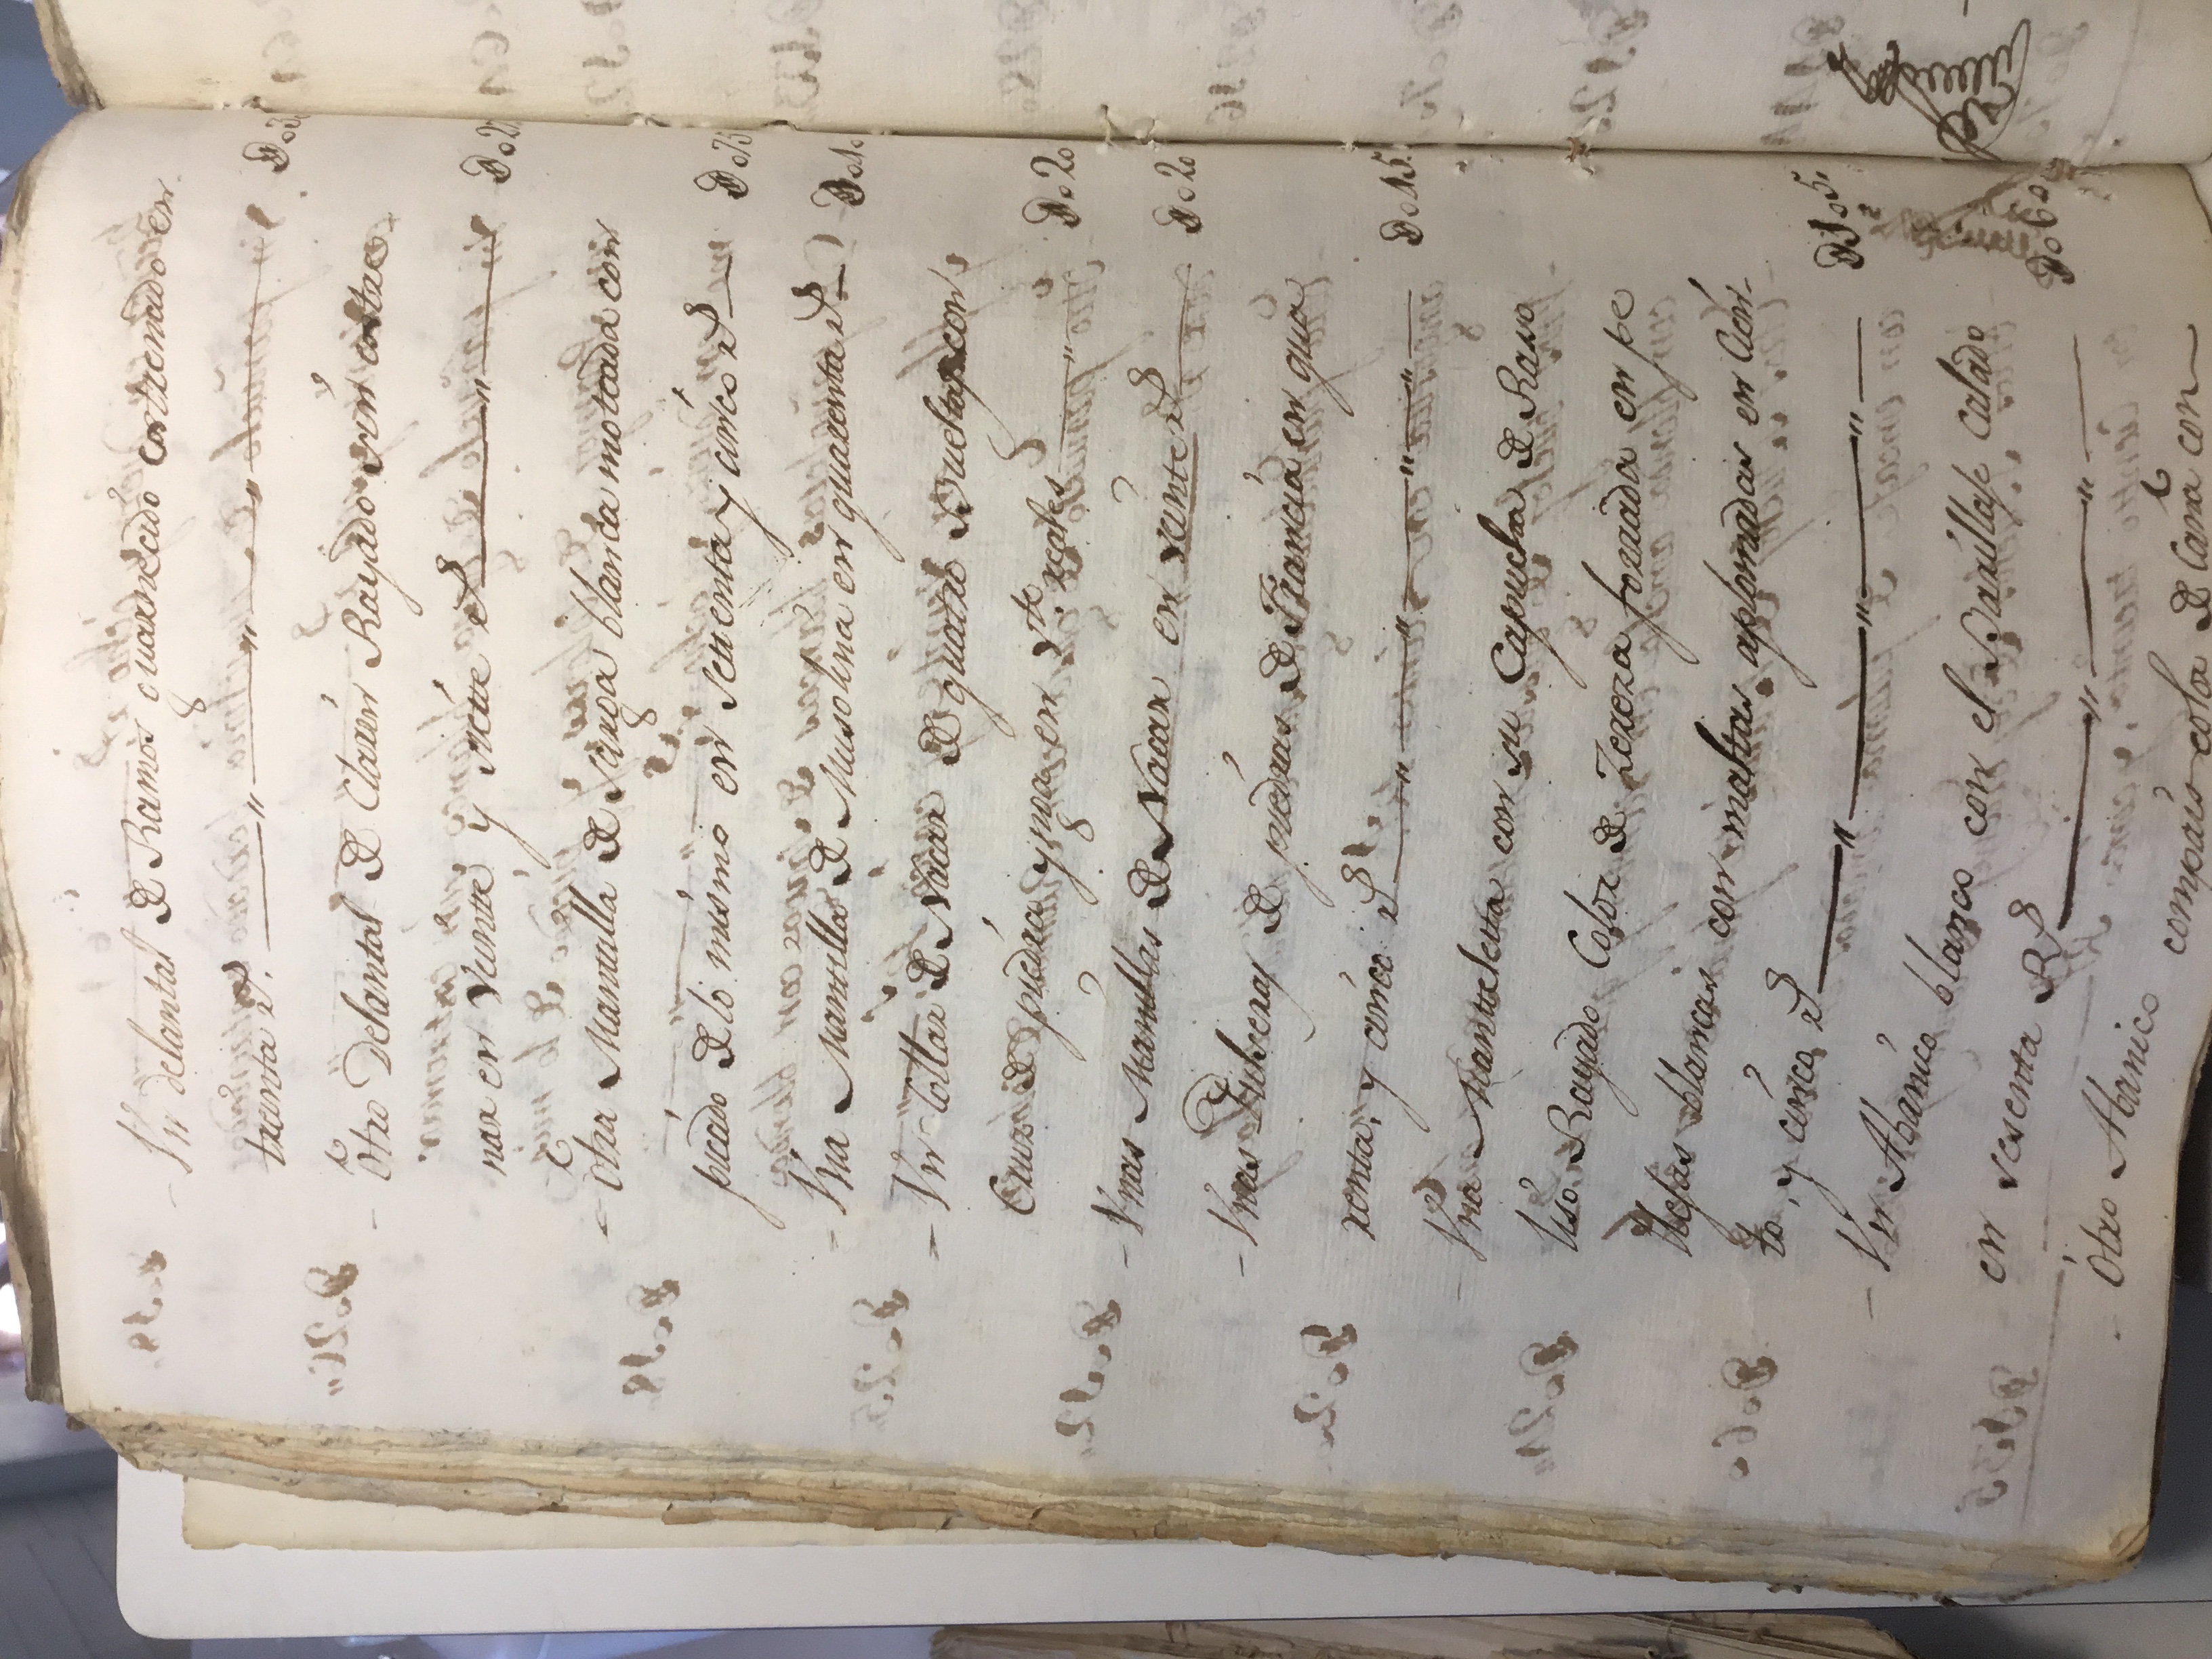 - Vn delantal de Ramos guarnecido costreniado en
treinta rs.
- Otro Delantal de Clarin Rayado sin costuras
nar en Veinte y siete rs
- Otra Mantilla de Sarga blanca moteada con
picado de lo mismo en setenta y cinco rs
- Vna Mantilla de Musolina en quarenta rs
- Vn Collar de Nacar de quatro Bueltas con
Cruz de piedra ynga en Vte reales Do20
- Vnas Manillas de Nacar en veinte rs Do20
- Vnas Pulseras de piedras de Francia en qua
renta, y cinco rs Do45.
- Vna Manteletta con su Capucha de Raso
liso Rayado Color de forrada en fe
blancas con maltas aplomadas en Cien-
to, y cinco rs D1o5.
- Vn Abanico blanco con el Baríllaje calado
en sesenta Rs Do60
- Otro Abanico compaís cola de Caña con